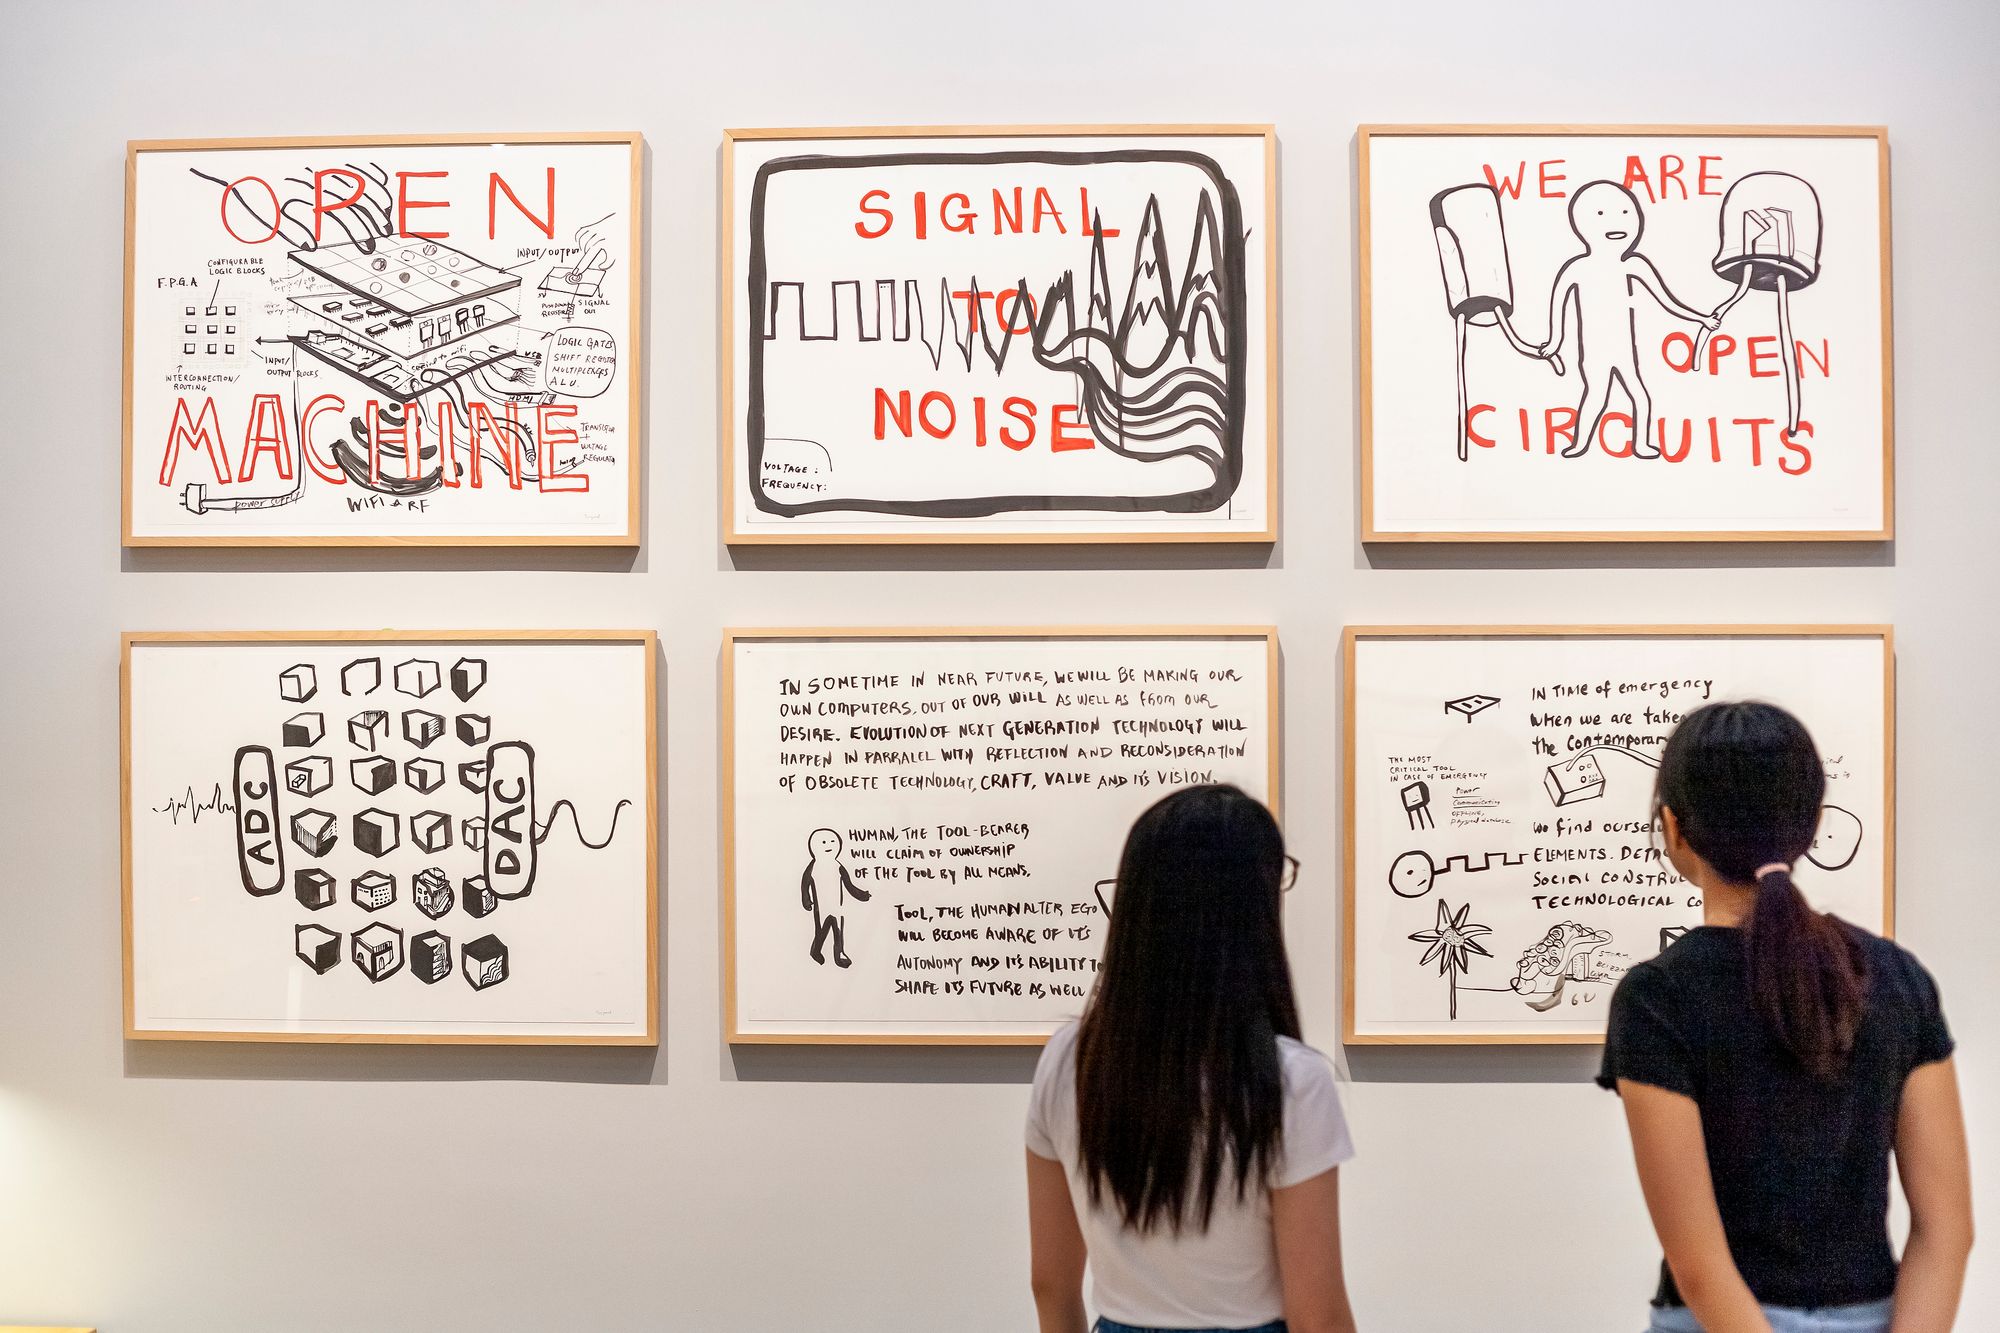 OPEN
F.P.G.A
CONFIGURABLE
LOGIC BLOCKS
INPUT/OUTPUT
5V
SIGNAL
OUT
INTERCONNECTION/
ROUTING
INPUT/
OUTPUT BLOCKS
LOGIC GATES
SHIFT REGISTER
MULTIPLEXERS
ALU.
USB
HDMI
MACHINE
VOLTAGE
power supply
WIFI & RF
SIGNAL
TO
NOISE
VOLTAGE:
FREQUENCY:
WE ARE
OPEN
CIRCUITS
ADC
DAC
IN SOMETIME IN NEAR FUTURE, WE WILL BE MAKING OUR
OWN COMPUTERS, OUT OF OUR WILL AS WELL AS from OUR
DESIRE. EVOLUTION OF NEXT GENERATION TECHNOLOGY WILL
HAPPEN IN PARRALEL WITH REFLECTION AND RECONSIDERATION
OF OBSOLETE TECHNOLOGY, CRAFT, VALUE AND ITS VISION.
HUMAN, THE TOOL-BEARER
WILL CLAIM OF OWNERSHIP
OF THE TOOL BY ALL MEANS.
TOOL, THE HUMAN ALTER EGO
WILL BECOME AWARE OF IT'S
AUTONOMY AND IT'S ABILITY TO
SHAPE ITS FUTURE AS WELL
IN TIME of emergency
when we are taken
the Contemporar
THE MOST
CRITICAL TOOL
IN CASE OF EMERGENCY
Power
Communication
OFFLINE,
physical database
We find ourse
ELEMENTS. DETA
SOCIAL CONSTRUC
TECHNOLOGICAL CO
STORM